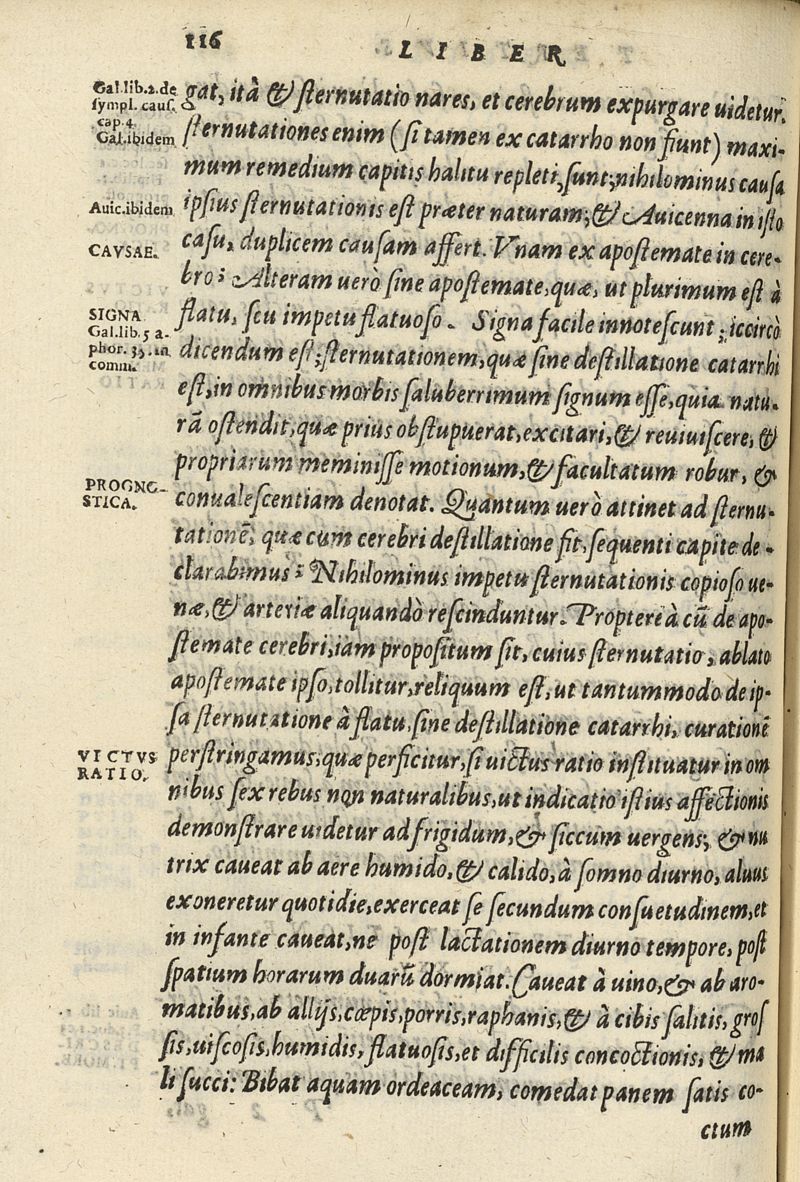 116
LIBER
Gal.lib.2.de
sympl. caus.
cap.4.
Gal.ibidem
Auic.ibidem
CAVSAE.
SIGNA
Gal.lib.5 a-
phor. 35. in
comm.
PROGNO-
STICA.
VICTVS
RATIO.
gat, itâ & sternutatio nares, et cerebrum expurgare uidetur.
sternutationes enim (si tamen ex catarrho non fiunt) maxi-
mum remedium capitis halitu repleti, sunt; nihilominus causa
ipsius sternutationis est præter naturam; & Auicenna in isto
casu, duplicem causam affert. Vnam ex apostemate in cere-
bro: Alteram uerò sine apostemate, quæ, ut plurimum est à
flatu, seu impetu flatuoso. Signa facile innotescunt; iccircò
dicendum est; sternutationem, quæ sine destillatione catarrhi
est, in omnibus morbis saluberrimum signum esse, quia natu-
rã ostendit, quæ prius obstupuerat, excitari, & reuiuiscere, &
propriarum meminisse motionum, & facultatum robur, &
conualescentiam denotat. Quantum uerò attinet ad sternu-
tationẽ, quæ cum cerebri destillatione fit, sequenti capite de-
clarabimus: Nihilominus impetu sternutationis copioso ue-
næ, & arteriæ aliquandò rescinduntur. Propterè à cũ de apo-
stemate cerebri, iam propositum sit, cuius sternutatio, ablato
apostemate ipso, tollitur, reliquum est, ut tantummodo de ip-
sa sternutatione à flatu, sine destillatione catarrhi, curationẽ
perstringamus, quæ perficitur, si uictus ratio instituatur in om
nibus sex rebus non naturalibus, ut indicatio istius affectionis
demonstrare uidetur ad frigidum, & siccum uergens; & nu
trix caueat ab aere humido, & calido, à somno diurno, aluus
exoneretur quotidie, exerceat se secundum consuetudinem, et
in infante caueat, ne post lactationem diurno tempore, post
spatium horarum duarũ dormiat. Caueat à uino, & ab aro-
matibus, ab allijs, cæpis, porris, raphanis, & à cibis salitis, gros
sis, uiscosis, humidis, flatuosis, et difficilis concoctionis, & ma
li succi: Bibat aquam ordeaceam, comedat panem satis co-
ctum